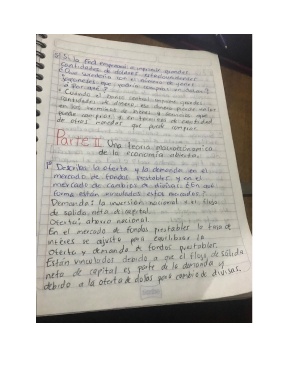 Si la Fed empezara a imprimir grandes
cantidades de dólares estadounidenses
¿Que sucedería con el número de yenes
japoneses que podría comprar un dólar?
¿Por qué?
Cuando el banco central imprime grandes
cantidades de dinero, ese dinero pierde valor
en los terminos de bienes y servicios que
puede comprar y en terminos de cantidad
de otras monedas que puede comprar.
Parte II Una teoría macroeconómica
de la economía abierta.
1º Describa la oferta y la demanda en el
mercado de fondos prestables y en el
mercado de cambios de divisas. ¿En qué
forma están vinculados estos mercados?
Demanda: la inversión nacional + el flujo
de salida neta de capital.
Oferta: ahorro nacional
En el mercado de fondos prestables la tasa de
interés se ajusta para equilibrar la
oferta y demanda de fondos prestables.
Están vinculados debido a que el flujo de salida
neta de capital es parte de la demanda y
debido a la oferta de dólares para cambio de divisas.